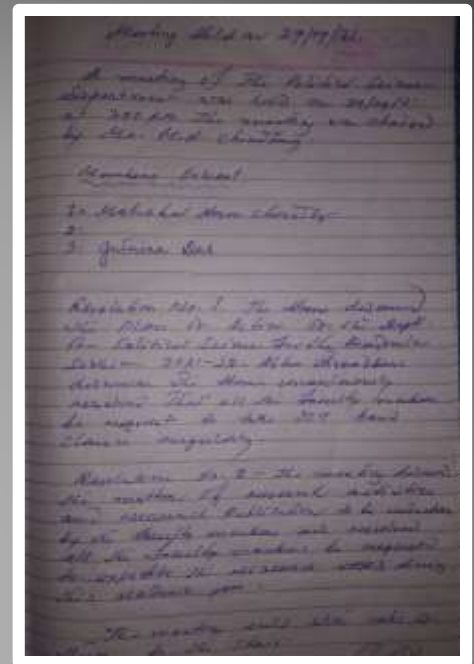 Meeting Held on 29/09/21.
A meeting of the Political Science
Department was held on 29/09/21
at 2.00 P.M. The meeting was chaired
by
Members Present
1.
2.
3. Das
Resolution No. 1. The House discussed
the Plan of Action of the Dept
for Political Science for the Academic
Session 2021-22. After threadbare
discussion the House unanimously
resolved that all the faculty member
be request to take ICT based
classes regularly.
Resolution No. 2 - The meeting discuss
the matter of research activities
and research Publication to be
by the faculty member and resolved
all the faculty members be requested
to expedite the research works during
this academic year.
The meeting ends with vote of
thanks to the Chair.